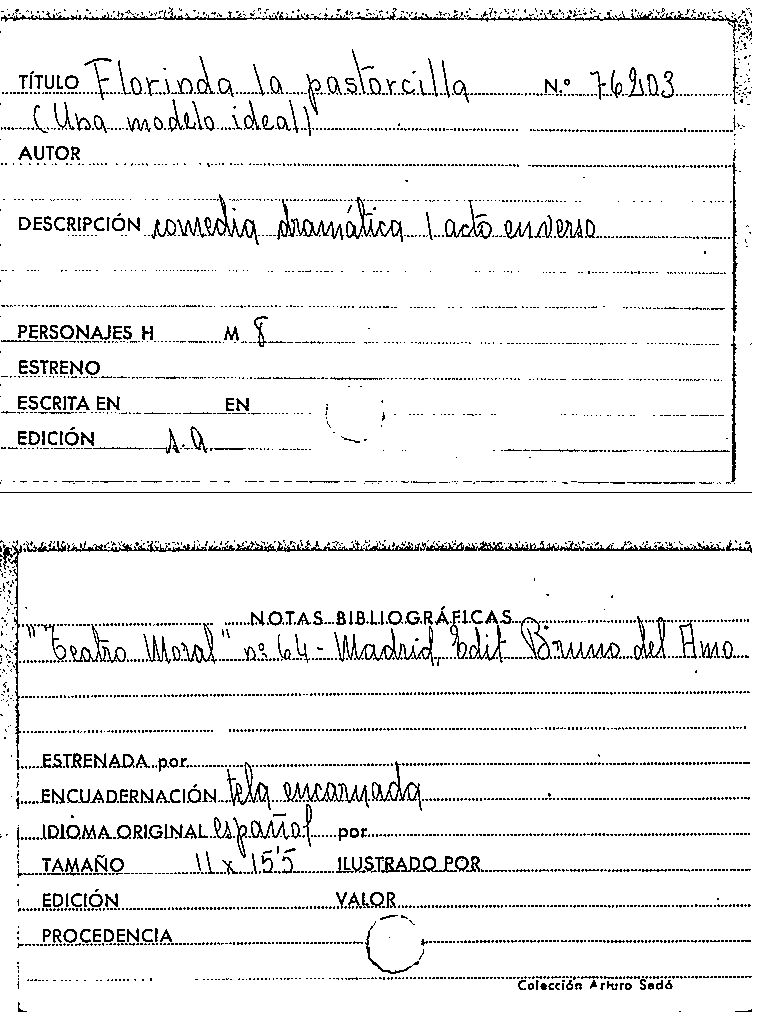 TÍTULO Florinda la pastorcilla N.º 76203
(Una modelo ideal)
AUTOR
DESCRIPCIÓN comedia dramática 1 acto en verso
PERSONAJES H M 8
ESTRENO
ESCRITA EN EN
EDICIÓN s.a.
NOTAS BIBLIOGRÁFICAS
"Teatro Moral" nº 64 - Madrid, Edit Bruno del Amo
ESTRENADA por
ENCUADERNACIÓN tela encarnada
IDIOMA ORIGINAL español por
TAMAÑO 11 x 15'5 ILUSTRADO POR
EDICIÓN VALOR
PROCEDENCIA
Colección Arturo Sedó